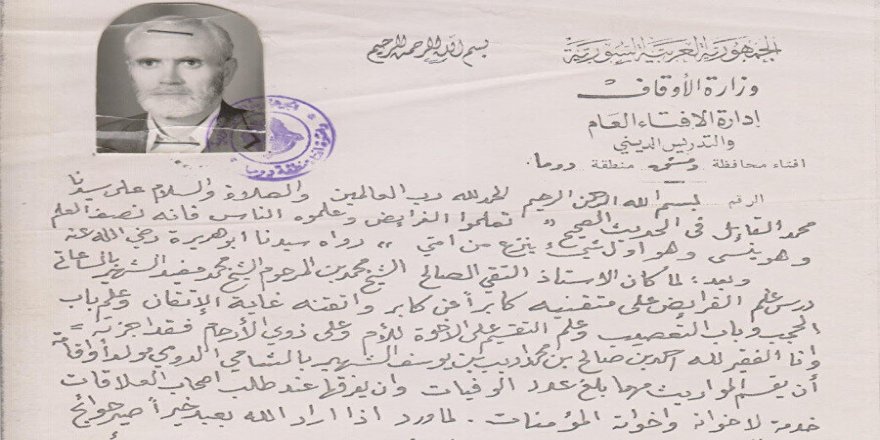 بسم الله الرحمن الرحيم
الجمهورية العربية السورية
وزارة الأوقاف
إدارة الافتاء العام
والتدريس الديني
افتاء محافظة دمشق منطقة دوما
الرقم بسم الله الرحمن الرحيم الحمد لله رب العالمين والصلاة والسلام على سيدنا
محمد القائل في الحديث الصحيح " تعلموا الفرائض وعلموه الناس فانه نصف العلم
وهو ينسى وهو اول شيء ينزع من امتي " رواه سيدنا ابو هريرة رضي الله عنه
وبعد : لما كان الاستاذ التقي الصالح الشيخ محمد بن المرحوم الشيخ محمد مفيد الشهير بالساعاتي
درس علم الفرائض على متقنيه كابراً عن كابر واتقنه غاية الإتقان وعلم باب
الحجب وباب التعصيب وعلم التقسيم على الاخوة للأم وعلى ذوي الأرحام فقد اجزته =
وانا الفقير لله احمد بن صالح بن محمد اديب بن يوسف الشهير بالشامي الدومي مولداً واقامة
أن يقسم المواريث مهما بلغ عدد الوفيات وان يفرقها عند طلب اصحاب العلاقات
خدمة لاخوانه واخواته المؤمنات . لما ورد اذا اراد الله بعبد خيراً صير حوائج